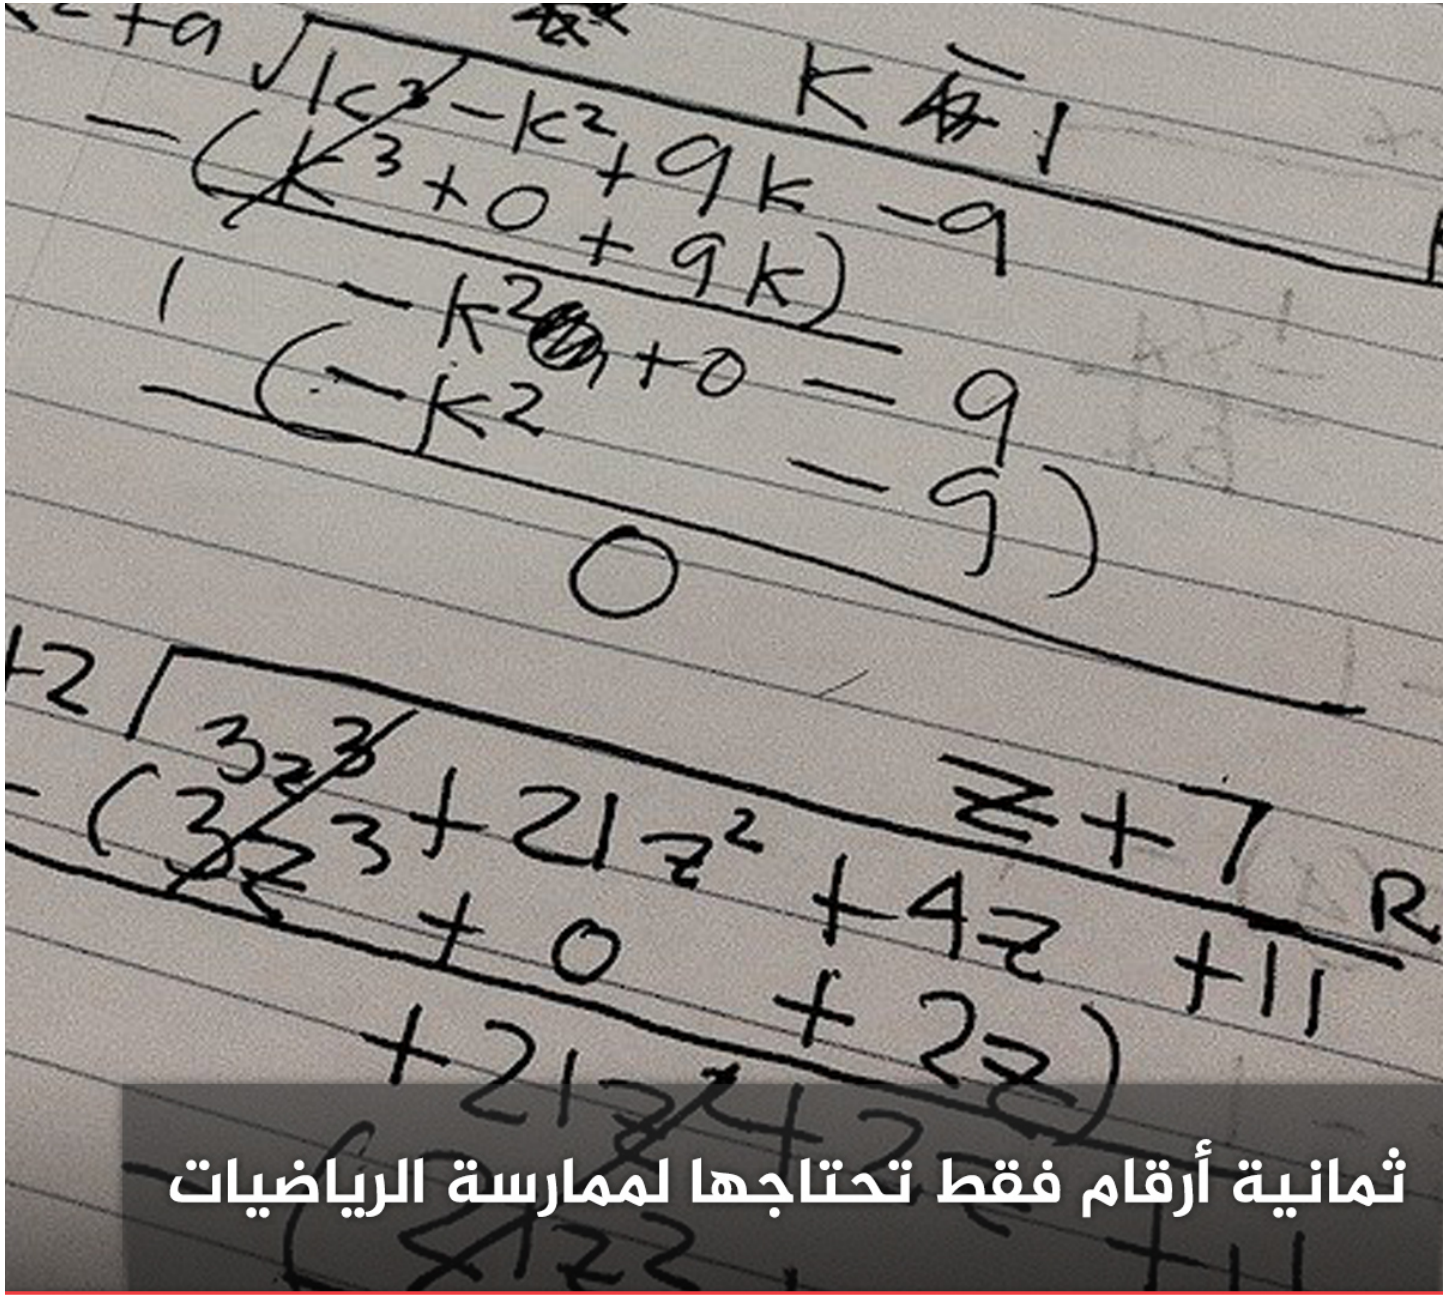 K - 1
k³ - k² + 9k - 9
- (k³ + 0 + 9k)
- k² + 0 - 9
- (- k² - 9)
0
z + 7 R
+2 3z³ + 21z² + 4z + 11
- (3z³ + 0 + 2z)
+ 21z² + 2z + 11
ثمانية أرقام فقط تحتاجها لممارسة الرياضيات